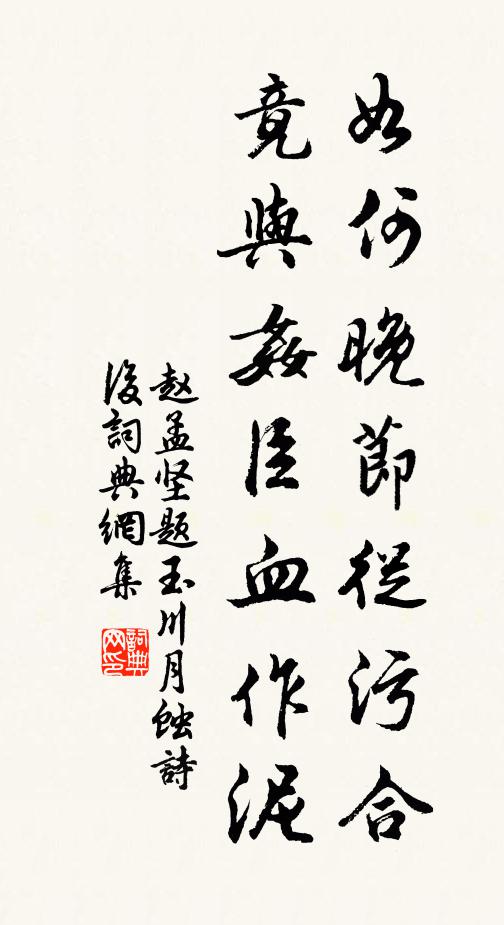 如何晚節從污合
竟與姦臣血作泥
赵孟坚题玉川月蚀詩
後詞典網集
詞典网印